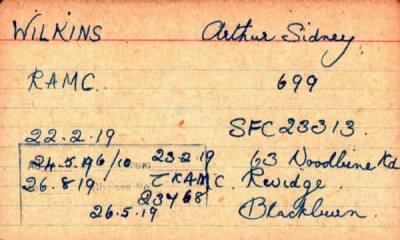 WILKINS Arthur Sidney.
RAMC. 699
22.2.19 SFC 23313.
24.5.19 6/10 23.2.19 63 Woodbine Rd
26.8.19 T RAMC. Revidge.
23468 Blackburn.
26.5.19